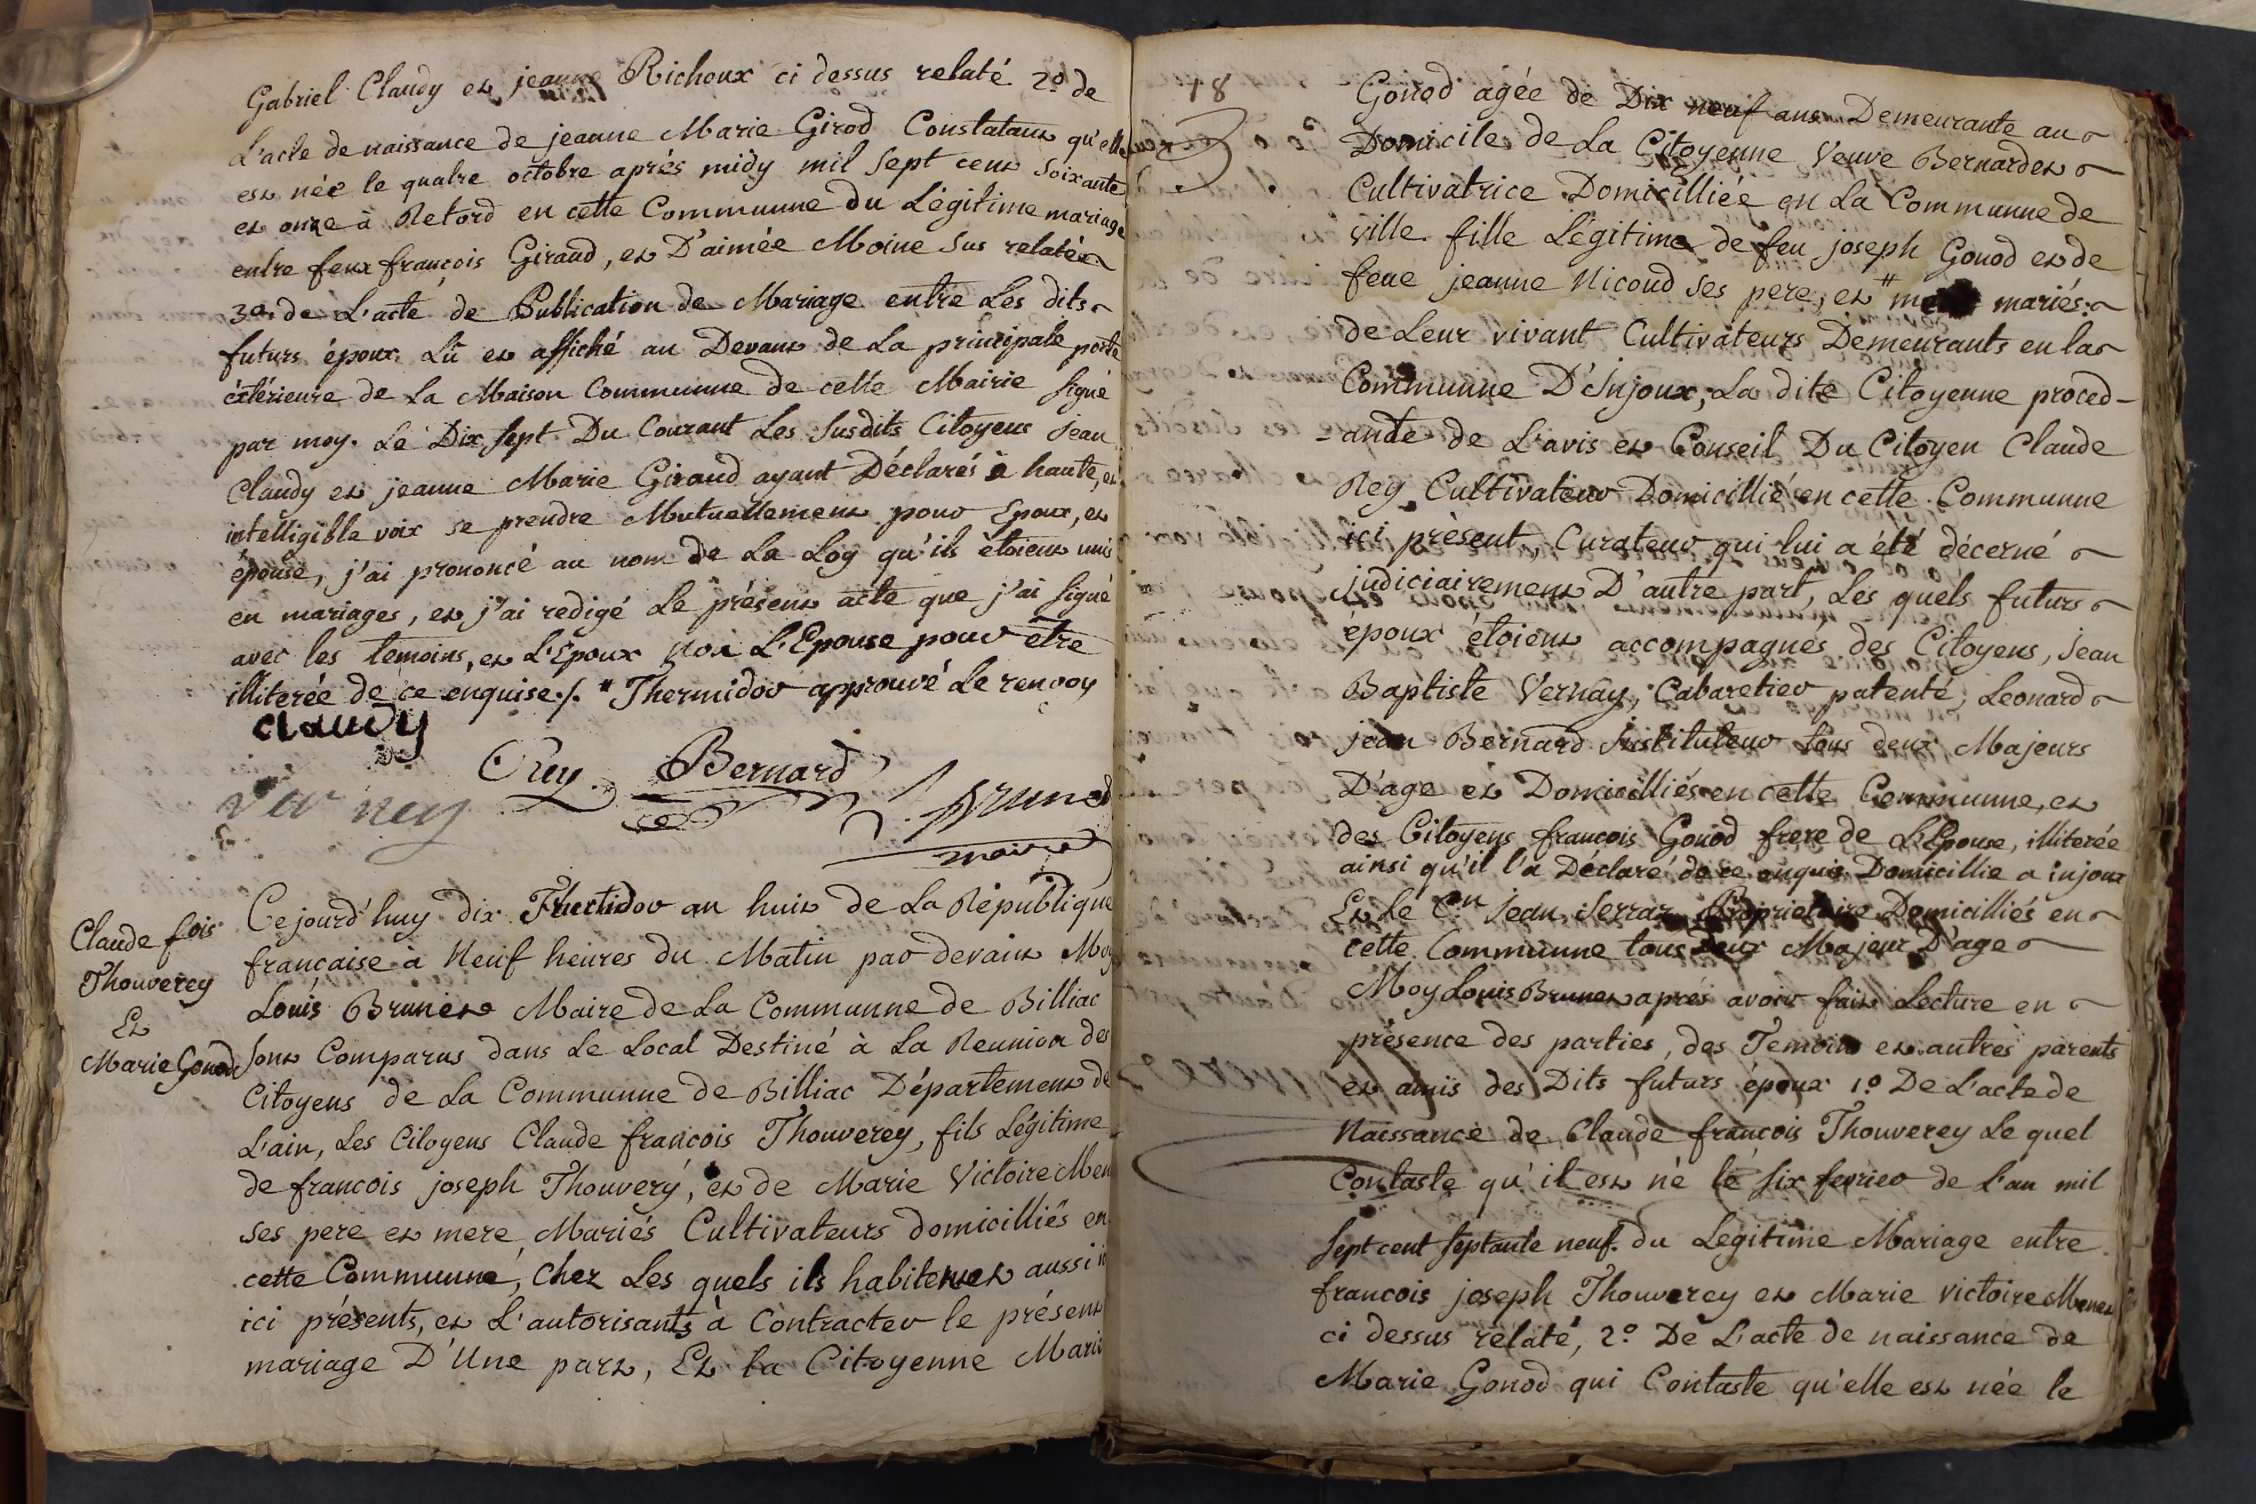 Gabriel Claudy et jeanne Richoux ci dessus relaté 2º. de
L'acte de naissance de jeanne Marie Girod Constatant qu'elle
est née le quatre octobre aprés midy mil sept cent soixante
et onze à Retord en cette Communne du Légitime mariage
entre feux francois Giraud, et D'aimée Moine sus relatée
3º. de L'acte de Publication de Mariage entre Les dits
futurs époux. Lû et affiché au Devant de La principale porte
éxtérieure de La Maison Communne de cette Mairie signé
par moy. Le Dix sept Du Courant Les susdits Citoyens Jean
Claudy et jeanne Marie Giraud ayant Déclarés à haute, et
intelligible voix se prendre Mutuellement pour Epoux, et
épouse, j'ai prononcé au nom de La Loy qu'ils étoient unis
en mariages, et j'ai redigé Le présent acte que j'ai signé
avec les temoins, et L'Epoux non L'Epouse pour être
illiterée de ce enquise ./. # Thermidor approuvé Le renvoy
claudy
Rey Bernard Brunet
ver ney
maire
Claude fois
Thouverey
Et
Marie Gonod
Ce jourd'huy dix Fructidor an huit de La République
francaise à Neuf heures du Matin par devant Moy
Louis Brunet Maire de La Communne de Billiac
sont Comparus dans Le Local Destiné à La Reunion des
Citoyens de La Communne de Billiac Département de
L'ain, Les Citoyens Claude francois Thouverey, fils Légitime
de francois joseph Thouvery, et de Marie Victoire Men
ses pere et mere Mariés Cultivateurs domicilliés en
cette Communne, Chez Les quels ils habitent et aussi
ici présents, et L'autorisants à Contracter le présent
mariage D'Une part, Et la Citoyenne Marie
18
Gonod agée de Dix neuf ans Demeurante au
Domicile de La Citoyenne Veuve Bernardet
Cultivatrice Domicilliée en La Communne de
ville fille Légitime de feu joseph Gonod et de
feue jeanne Nicoud ses pere, et # mere mariés.
de Leur vivant Cultivateurs Demeurants en la
Communne D'Injoux; La dite Citoyenne proced-
-ante de L'avis et Conseil Du Citoyen Claude
Rey Cultivateur Domicillié en cette Communne
ici présent, Curateur qui lui a été décerné
judiciairement D'autre part, Les quels futurs
époux étoient accompagnés des Citoyens, Jean
Baptiste Vernay, Cabaretier patenté, Leonard
jean Bernard Instituteur tous deux Majeurs
D'age et Domicilliés en cette Communne, et
des Citoyens francois Gonod frere de L'Epouse, illiterée
ainsi qu'il l'a Déclaré de ce enquis Domicillie a injoux
Et le C.en Jean Serraz Proprietaire Domicilliés en
cette Communne tous Deux Majeur D'age
Moy Louis Brunet aprés avoir fait Lecture en
présence des parties, des Temoins et autres parents
et amis des Dits futurs époux 1º. De L'acte de
Naissance de Claude francois Thouverey Le quel
Contaste qu'il est né le six fevrier de L'an mil
sept cent septante neuf. du Legitime Mariage entre
francois joseph Thouverey et Marie victoire Menet
ci dessus relaté, 2º. De L'acte de naissance de
Marie Gonod qui Contaste qu'elle est née le